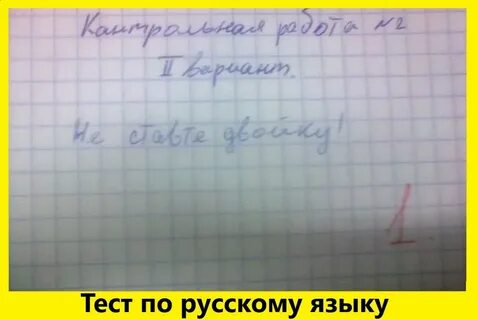 Кантрольная работа №2
II вариант.
Не ставте двойку!
1
Тест по русскому языку